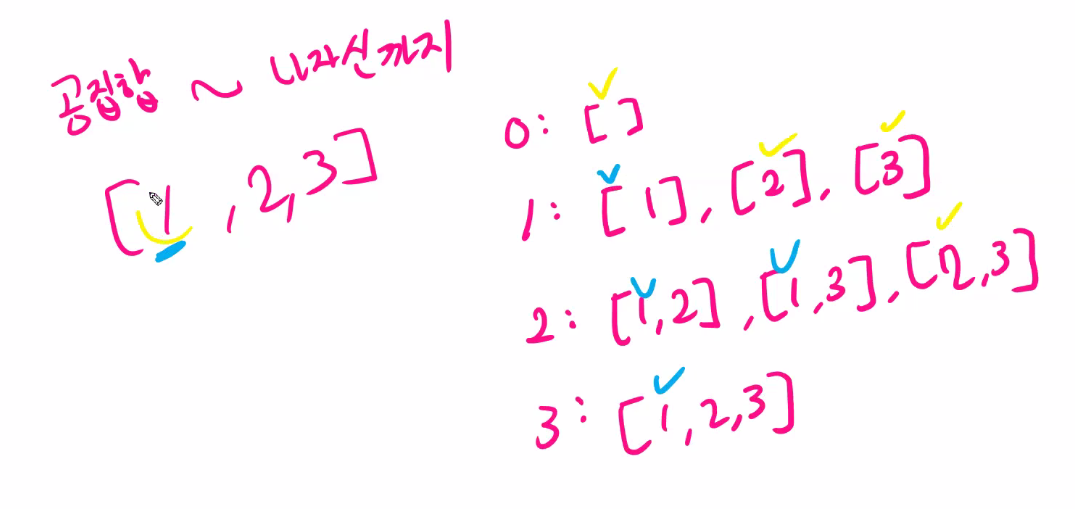 공집합 ~ 나자신까지
[1, 2, 3]
0: [ ]
1: [1], [2], [3]
2: [1,2], [1,3], [2,3]
3: [1,2,3]